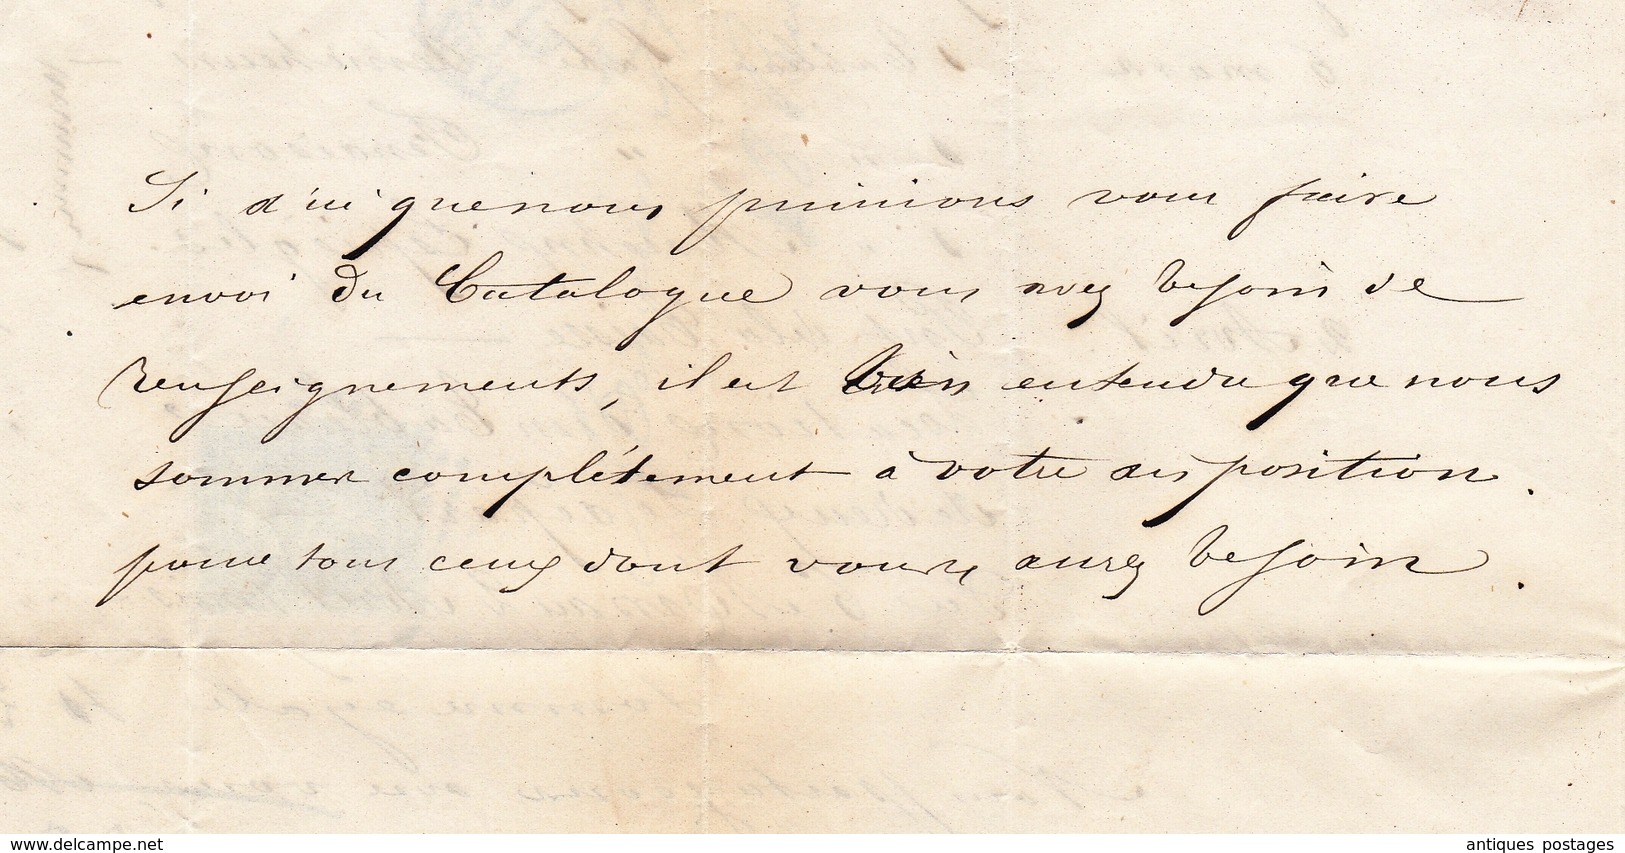 Si d'ici que nous puissions vous faire
envoi du Catalogue vous avez besoin de
renseignements, il est bien entendu que nous
sommes complétement à votre disposition.
pour tous ceux dont vous aurez besoin.
delcampe.net
antiques postages